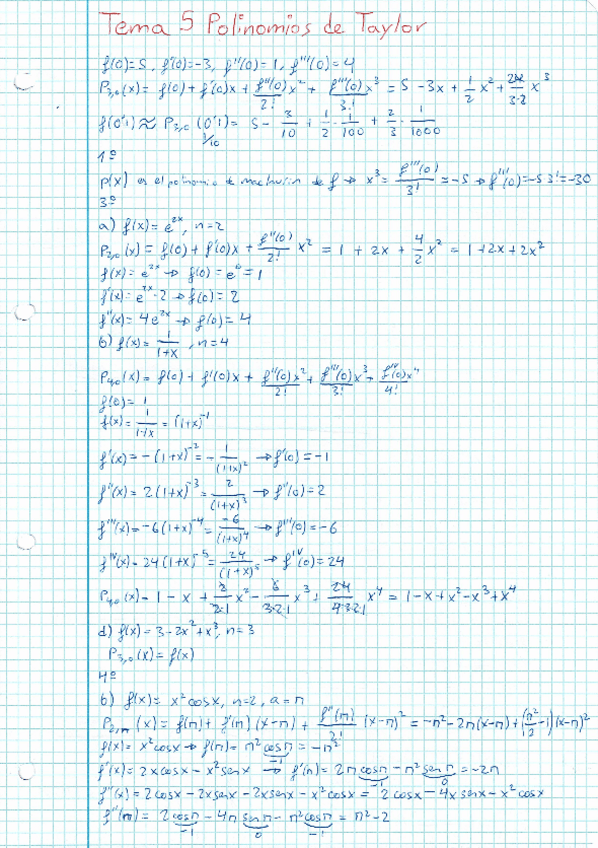 Tema 5 Polinomios de Taylor
f(0)=5, f'(0)=-3, f''(0)=1, f'''(0)=4
P₃,₀(x) = f(0) + f'(0)x + f''(0)/2! x² + f'''(0)/3! x³ = 5 - 3x + 1/2 x² + 4/3·2 x³
f(0'1) ≈ P₃,₀(0'1) = 5 - 3/10 + 1/2 · 1/100 + 2/3 · 1/1000
1/10
1º
P(x) es el polinomio de maclaurin de f → x³ = f'''(0)/3! = -5 → f'''(0) = -5·3! = -30
3º
a) f(x) = e²ˣ, n=2
P₂,₀(x) = f(0) + f'(0)x + f''(0)/2! x² = 1 + 2x + 4/2 x² = 1+2x+2x²
f(x) = e²ˣ → f(0) = e⁰ = 1
f'(x) = e²ˣ·2 → f(0) = 2
f''(x) = 4e²ˣ → f(0) = 4
b) f(x) = 1/1+x, n=4
P₄,₀(x) = f(0) + f'(0)x + f''(0)x²/2! + f'''(0)/3! x³ + f''''(0)x⁴/4!
f(0) = 1
f(x) = 1/1+x = (1+x)⁻¹
f'(x) = -(1+x)⁻² = -1/(1+x)² → f'(0) = -1
f''(x) = 2(1+x)⁻³ = 2/(1+x)³ → f''(0) = 2
f'''(x) = -6(1+x)⁻⁴ = -6/(1+x)⁴ → f'''(0) = -6
f''''(x) = 24(1+x)⁻⁵ = 24/(1+x)⁵ → f''''(0) = 24
P₄,₀(x) = 1 - x + 2/2·1 x² - 6/3·2·1 x³ + 24/4·3·2·1 x⁴ = 1-x+x²-x³+x⁴
d) f(x) = 3-2x²+x³, n=3
P₃,₀(x) = f(x)
4º
b) f(x) = x²cosx, n=2, a=π
P₂,π(x) = f(π) + f'(π)(x-π) + f''(π)/2! (x-π)² = -π²-2π(x-π)+(π²/2-1)(x-π)²
f(x) = x²cosx → f(π) = π²cosπ = -π²
-1
f'(x) = 2xcosx - x²senx → f'(π) = 2πcosπ - π²senπ = -2π
-1 0
f''(x) = 2cosx - 2xsenx - 2xsenx - x²cosx = 2cosx - 4xsenx - x²cosx
f''(π) = 2cosπ - 4πsenπ - π²cosπ = π²-2
-1 0 -1